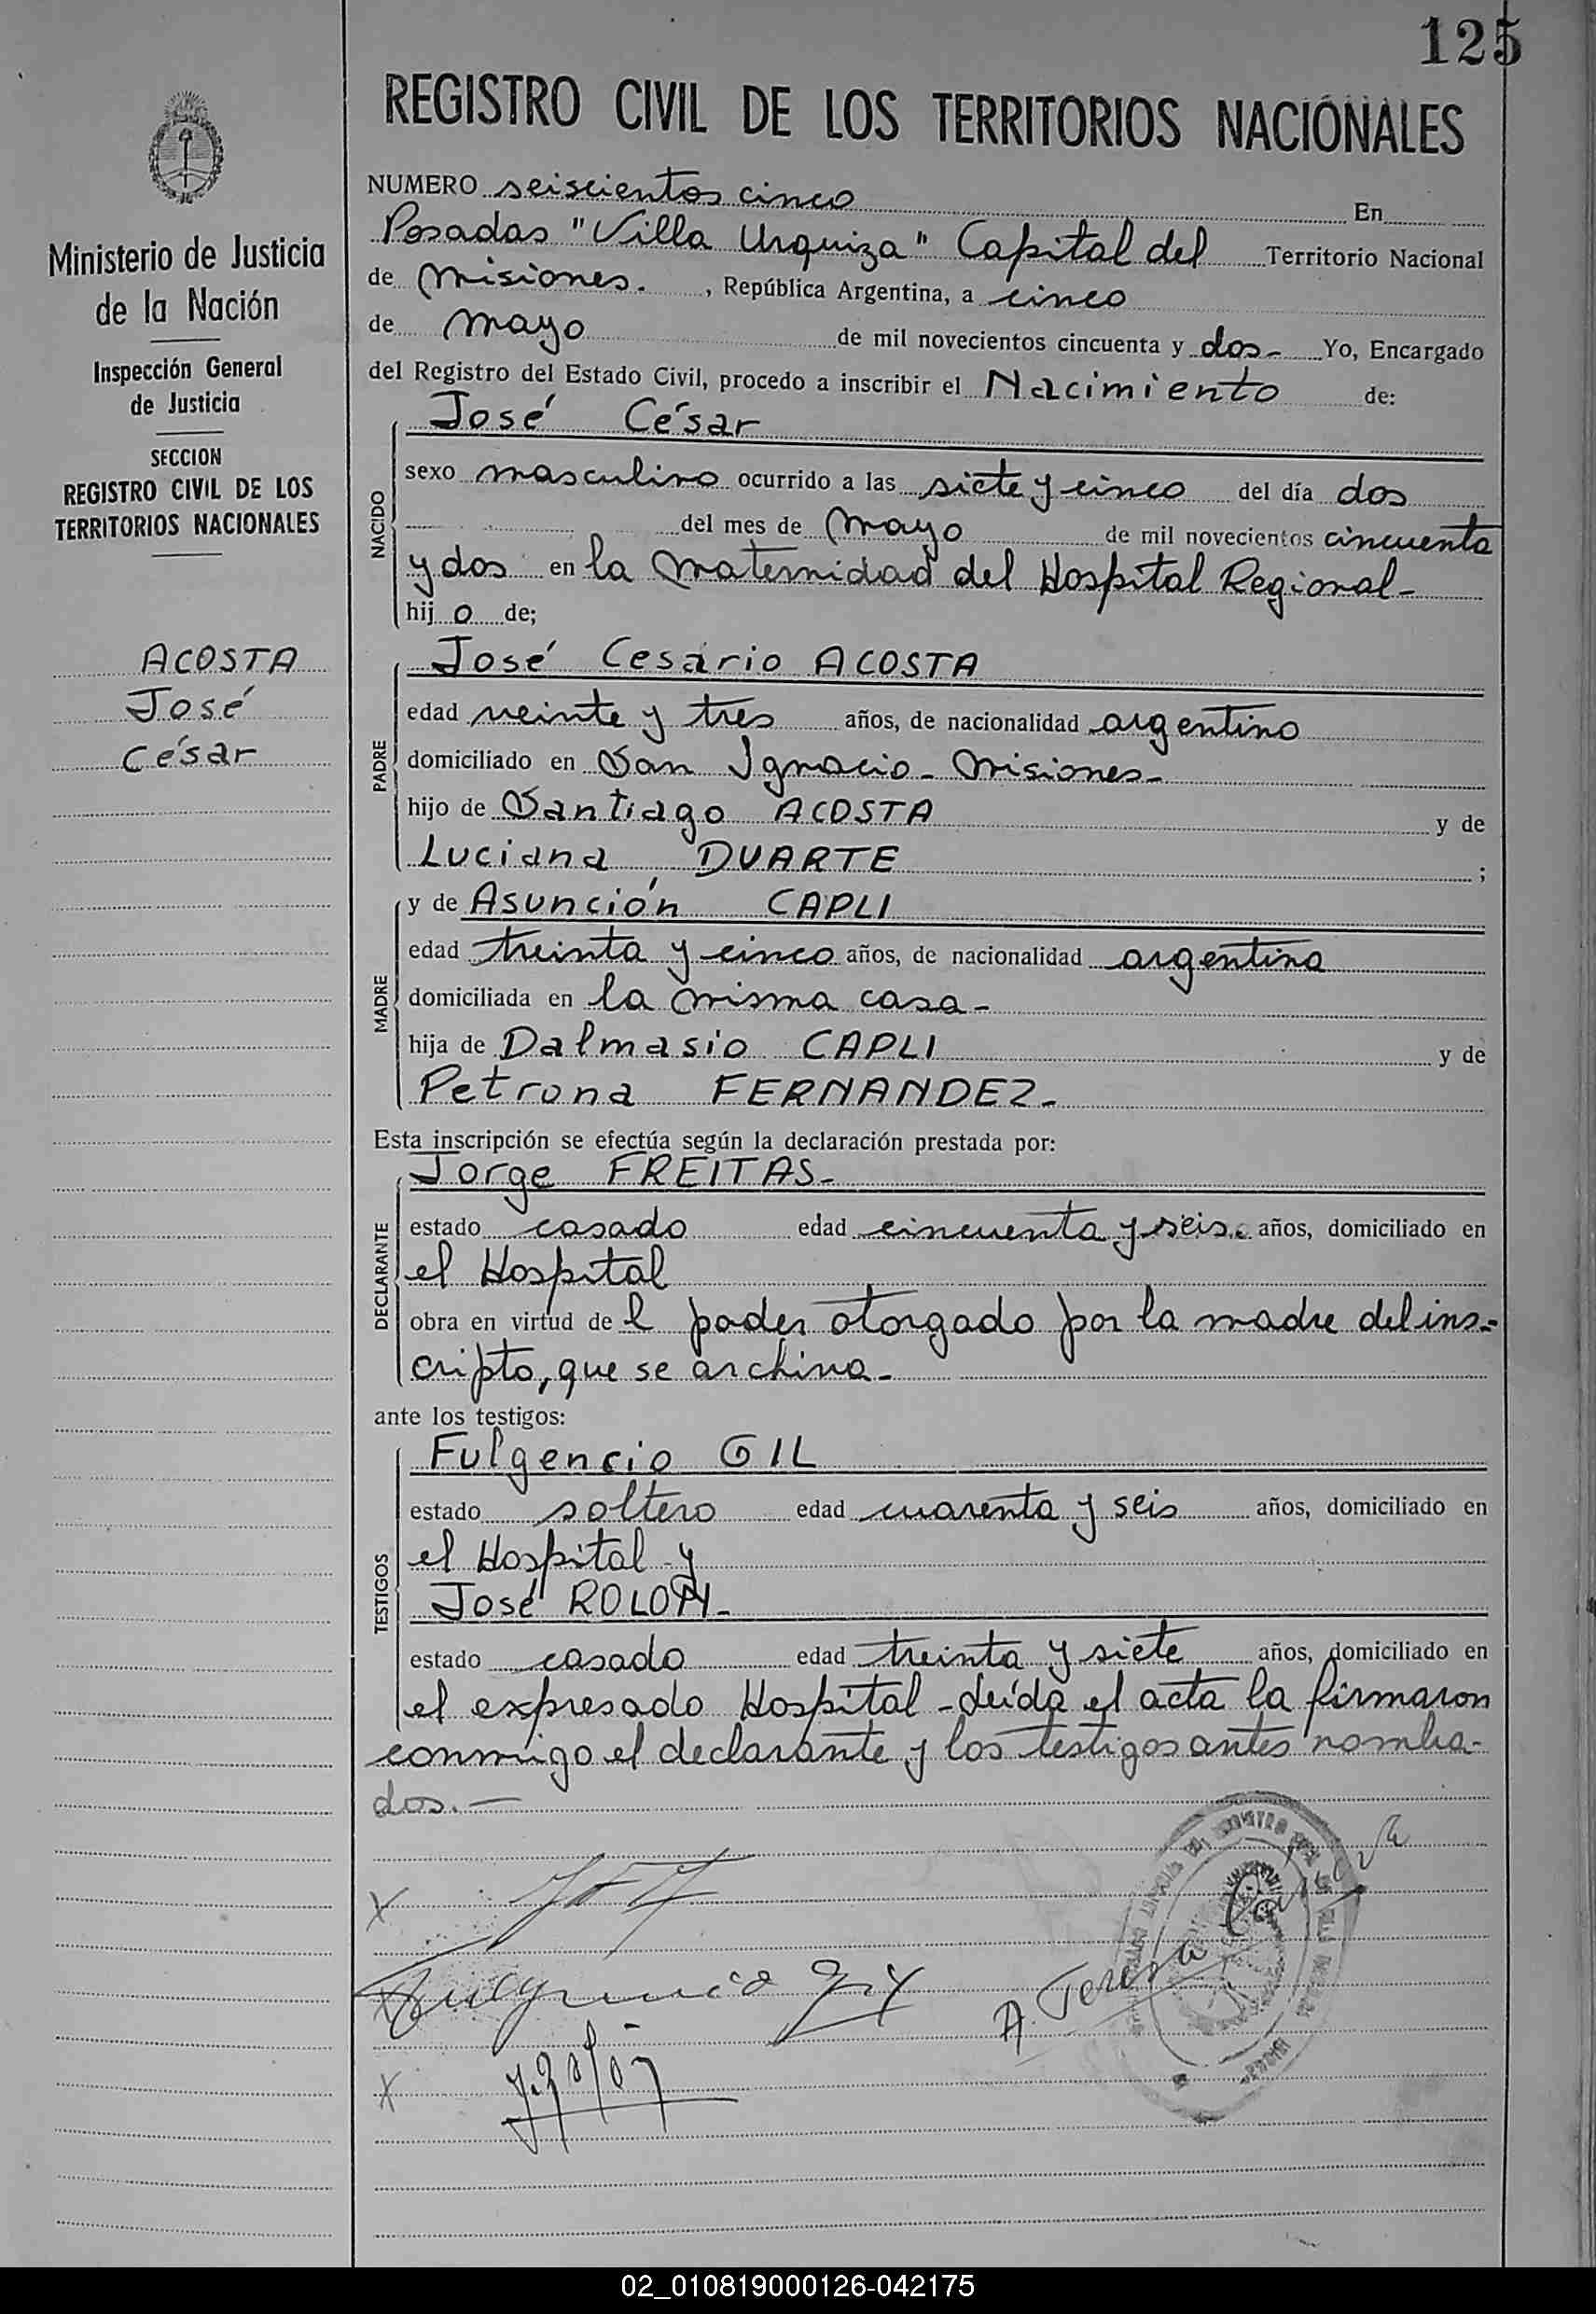 125
REGISTRO CIVIL DE LOS TERRITORIOS NACIONALES
Ministerio de Justicia
de la Nación
Inspección General
de Justicia
SECCION
REGISTRO CIVIL DE LOS
TERRITORIOS NACIONALES
ACOSTA
José
César
NUMERO seiscientos cinco En
Posadas "Villa Urquiza" Capital del Territorio Nacional
de Misiones. , República Argentina, a cinco
de mayo de mil novecientos cincuenta y dos- Yo, Encargado
del Registro del Estado Civil, procedo a inscribir el Nacimiento de:
NACIDO
José César
sexo masculino ocurrido a las siete y cinco del día dos
del mes de Mayo de mil novecientos cincuenta
y dos en la Maternidad del Hospital Regional-
hij o de;
PADRE
José Cesário ACOSTA
edad veinte y tres años, de nacionalidad argentino
domiciliado en San Ignacio- Misiones-
hijo de Santiago ACOSTA y de
Luciana DUARTE ;
MADRE
y de Asunción CAPLI
edad treinta y cinco años, de nacionalidad argentina
domiciliada en la misma casa-
hija de Dalmasio CAPLI y de
Petrona FERNANDEZ-
Esta inscripción se efectúa según la declaración prestada por:
DECLARANTE
Jorge FREITAS-
estado casado edad cincuenta y seis años, domiciliado en
el Hospital
obra en virtud de l poder otorgado por la madre del ins-
cripto, que se archiva-
ante los testigos:
TESTIGOS
Fulgencio GIL
estado soltero edad cuarenta y seis años, domiciliado en
el Hospital y
José ROLON-
estado casado edad treinta y siete años, domiciliado en
el expresado Hospital-Leída el acta la firmaron
conmigo el declarante y los testigos antes nombra-
dos.-
X
Fulgencio Gil
A Teresa
X
02_010819000126-042175